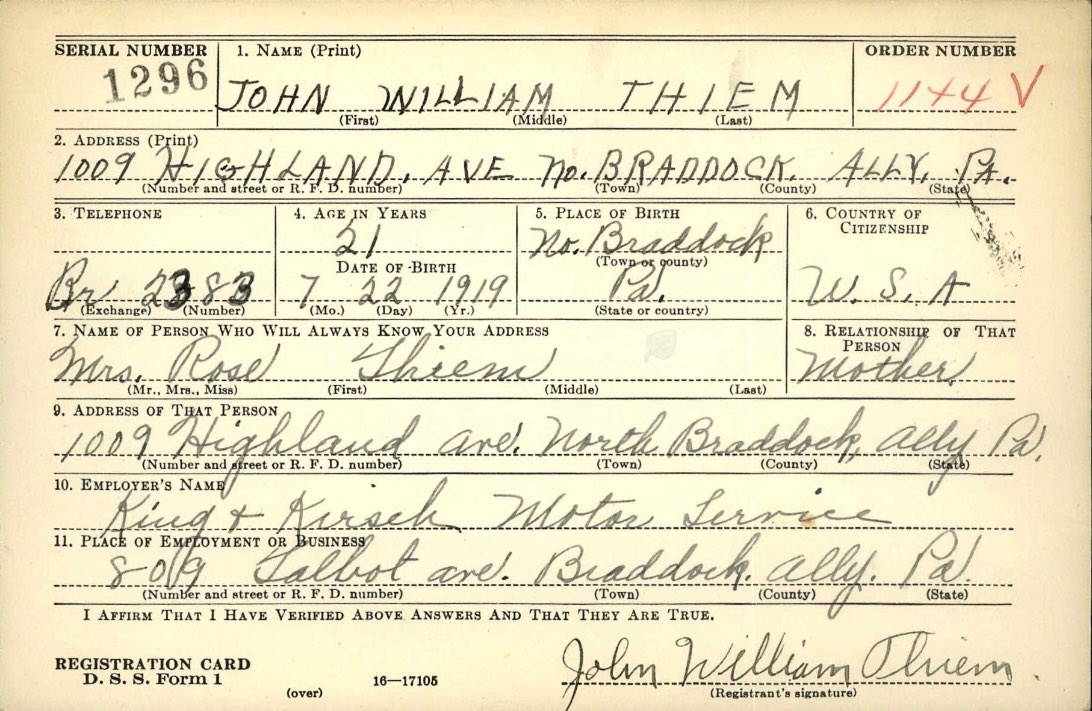 SERIAL NUMBER 1. NAME (Print) ORDER NUMBER
1296 JOHN WILLIAM THIEM 1144 V
(First) (Middle) (Last)
2. ADDRESS (Print)
1009 HIGHLAND. AVE No. BRADDOCK. ALLY. PA.
(Number and street or R. F. D. number) (Town) (County) (State)
3. TELEPHONE 4. AGE IN YEARS 5. PLACE OF BIRTH 6. COUNTRY OF CITIZENSHIP
21 No. Braddock
DATE OF BIRTH (Town or county)
Br 2383 7 22 1919 Pa. U. S. A
(Exchange) (Number) (Mo.) (Day) (Yr.) (State or country)
7. NAME OF PERSON WHO WILL ALWAYS KNOW YOUR ADDRESS 8. RELATIONSHIP OF THAT PERSON
Mrs. Rose Thiem Mother
(Mr., Mrs., Miss) (First) (Middle) (Last)
9. ADDRESS OF THAT PERSON
1009 Highland ave. North Braddock, Ally Pa.
(Number and street or R. F. D. number) (Town) (County) (State)
10. EMPLOYER'S NAME
King & Kirsch Motor Service
11. PLACE OF EMPLOYMENT OR BUSINESS
809 Talbot ave. Braddock. Ally. Pa.
(Number and street or R. F. D. number) (Town) (County) (State)
I AFFIRM THAT I HAVE VERIFIED ABOVE ANSWERS AND THAT THEY ARE TRUE.
REGISTRATION CARD John William Thiem
D. S. S. Form 1 (over) 16—17105 (Registrant's signature)